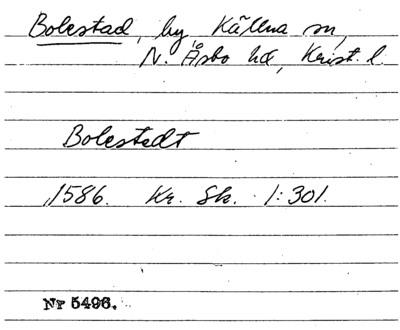 Bolestad, by, Källna sn,
N. Åsbo hd, Krist. l.
Bolestedt
1586. Kr. Sk. 1:301.
Nr 5496.